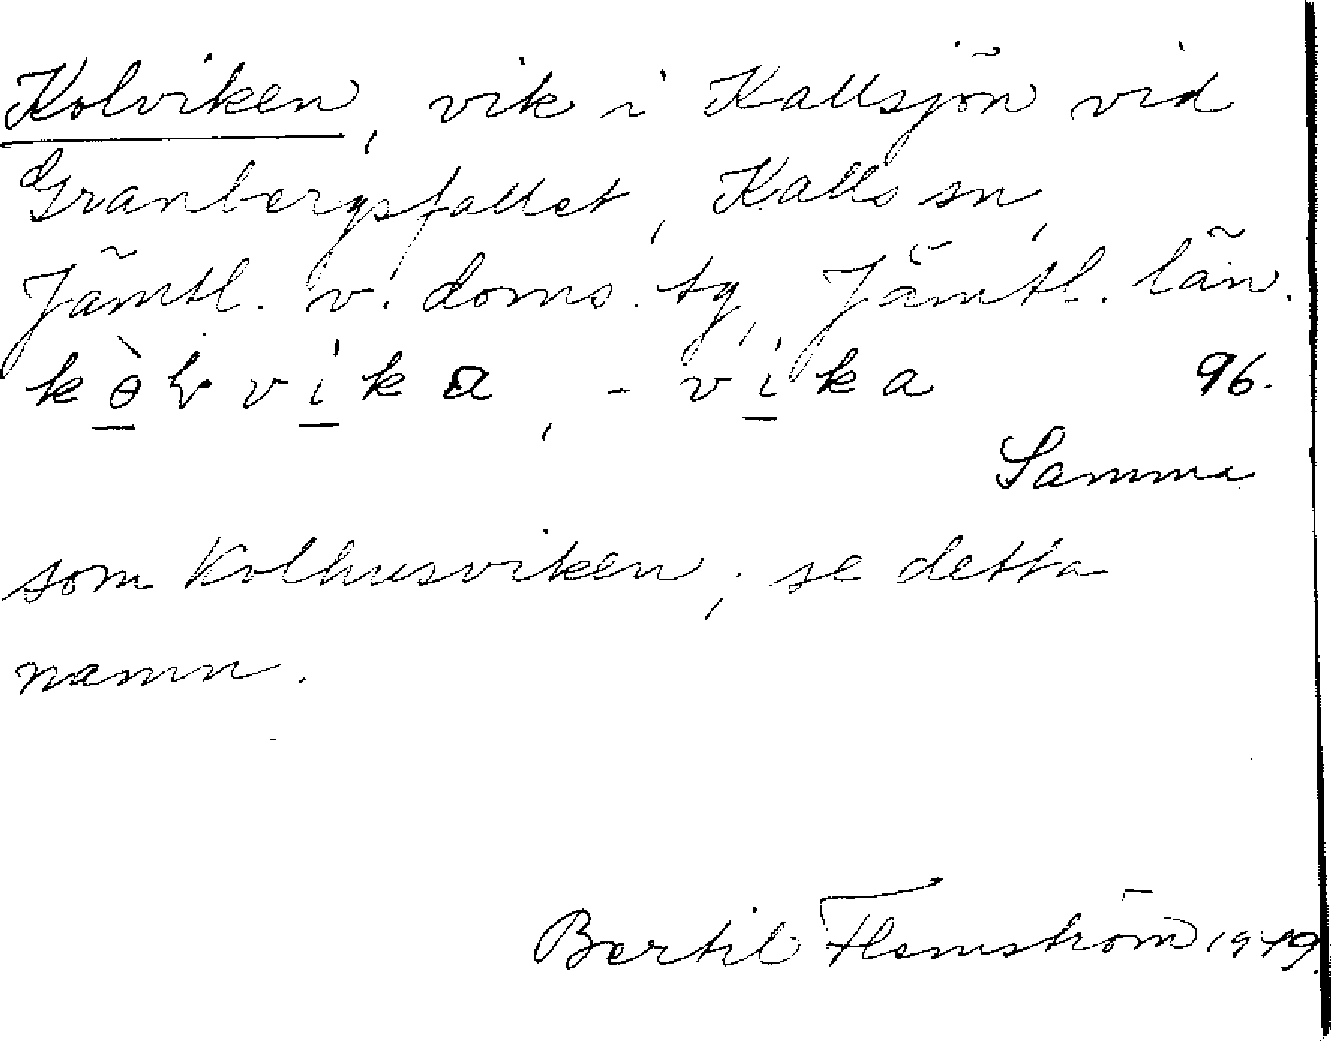 Kolviken, vik i Kallsjön vid
Granbergsfallet, Kalls sn,
Jämtl. v. doms. tg, Jämtl. län.
-vika 96.
Samma
som Kolhusviken, se detta
namn.
Bertil Flemström 1949.